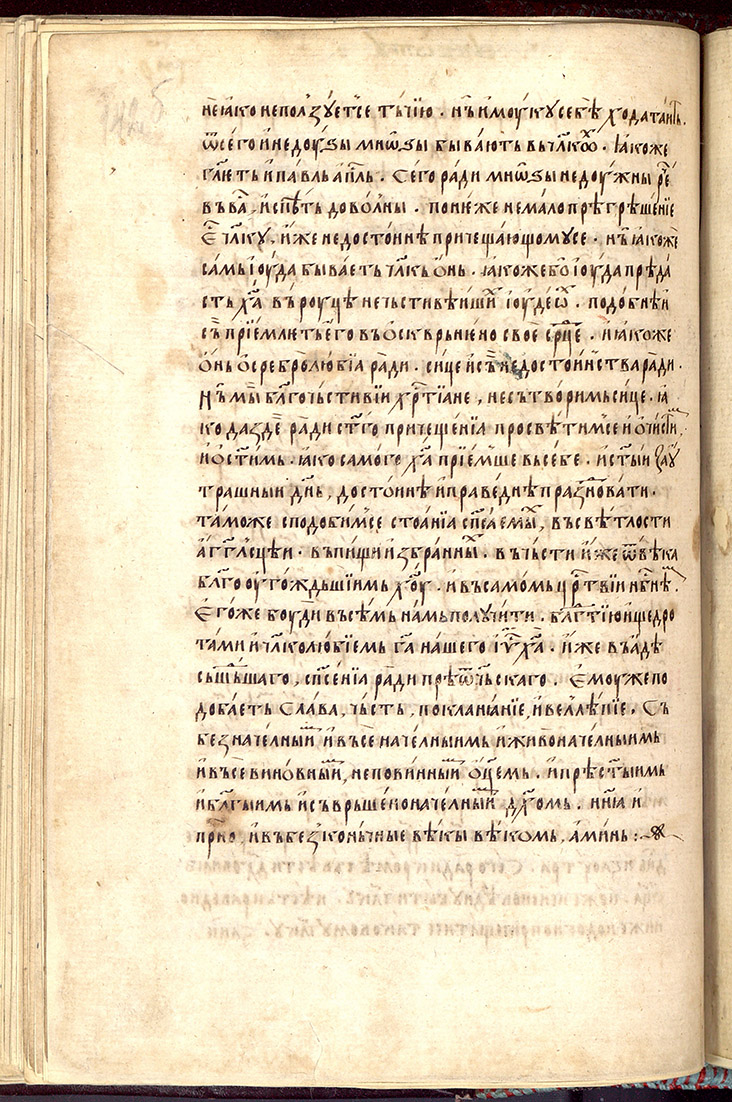 не ꙗко непол̾ꙁꙋетсе тъчїю . нъ и моукꙋ себѣ ходатаитъ .
ѿ сего и недоуꙃы мнѡꙃы бывають въ чл҃кох . Ꙗкоже
гл҃еть и павль ап҃ль . Сего ради мнѡꙃы недоужны рече
въ ва , и спѣть довол̾ны . понюже немало прѣгрѣшенїе
Е чл҃кꙋ . иже недостоинѣ причещающомꙋсе . нь ꙗкоже
самь їоуда бываеть чл҃кь онь . ꙗкоже бо їоуда прѣда
сть х҃а въ роуцѣ нечьстивѣишїи їоудеѡ . подобнѣ и
сь прїемлеть его въ оскврьнено свое ср҃це . и ꙗкоже
онь ѻ сребролюбїа ради . сице и съ недостоин̾ства ради .
Нь мы бл҃гочьстивїи хр҃тїане , не сътворимь сице . ꙗ
ко да ꙁде ради ст҃го причещенїа просвѣтимсе и ѻчистим ,
и ѻст҃имь . ꙗко самого х҃а прїемше въ себе . и ст҃ыи ꙁаꙋ
трашныи дн҃ь , достоинѣ и праведнѣ праꙁновати .
таможе сподобимсе стоанїа сп҃саемых , въ свѣтлости
аг҃гл̾сцѣи . въ пищи иꙁбранных . въ чьсти иже ѿ вѣка
бл҃го оугождьшїимь х҃оу . и въ самомь цр҃твїи нб҃нѣм .
Егоже боуди въсѣмь намь полꙋчити . бл҃гтїю и щедро
тами и чл҃колюбїемь г҃а нашего їꙋ х҃а . иже въ адѣ
съшьшаго , сп҃сенїа ради прѣѿчьскаго . Емоуже по
добаеть слава , чьсть , покланꙗнїе , и велѣлѣпїе . Съ
беꙁначелным и въсеначелныимь и живоначелныимь
и въсевиновным , неповинным ѻц҃емь . и прѣст҃ыимь
и бл҃гыимь и съврьшеноначелным дх҃омь . нн҃ꙗ и
пр҃но , и въ беꙁконьчные вѣкы вѣкомь , аминь :~